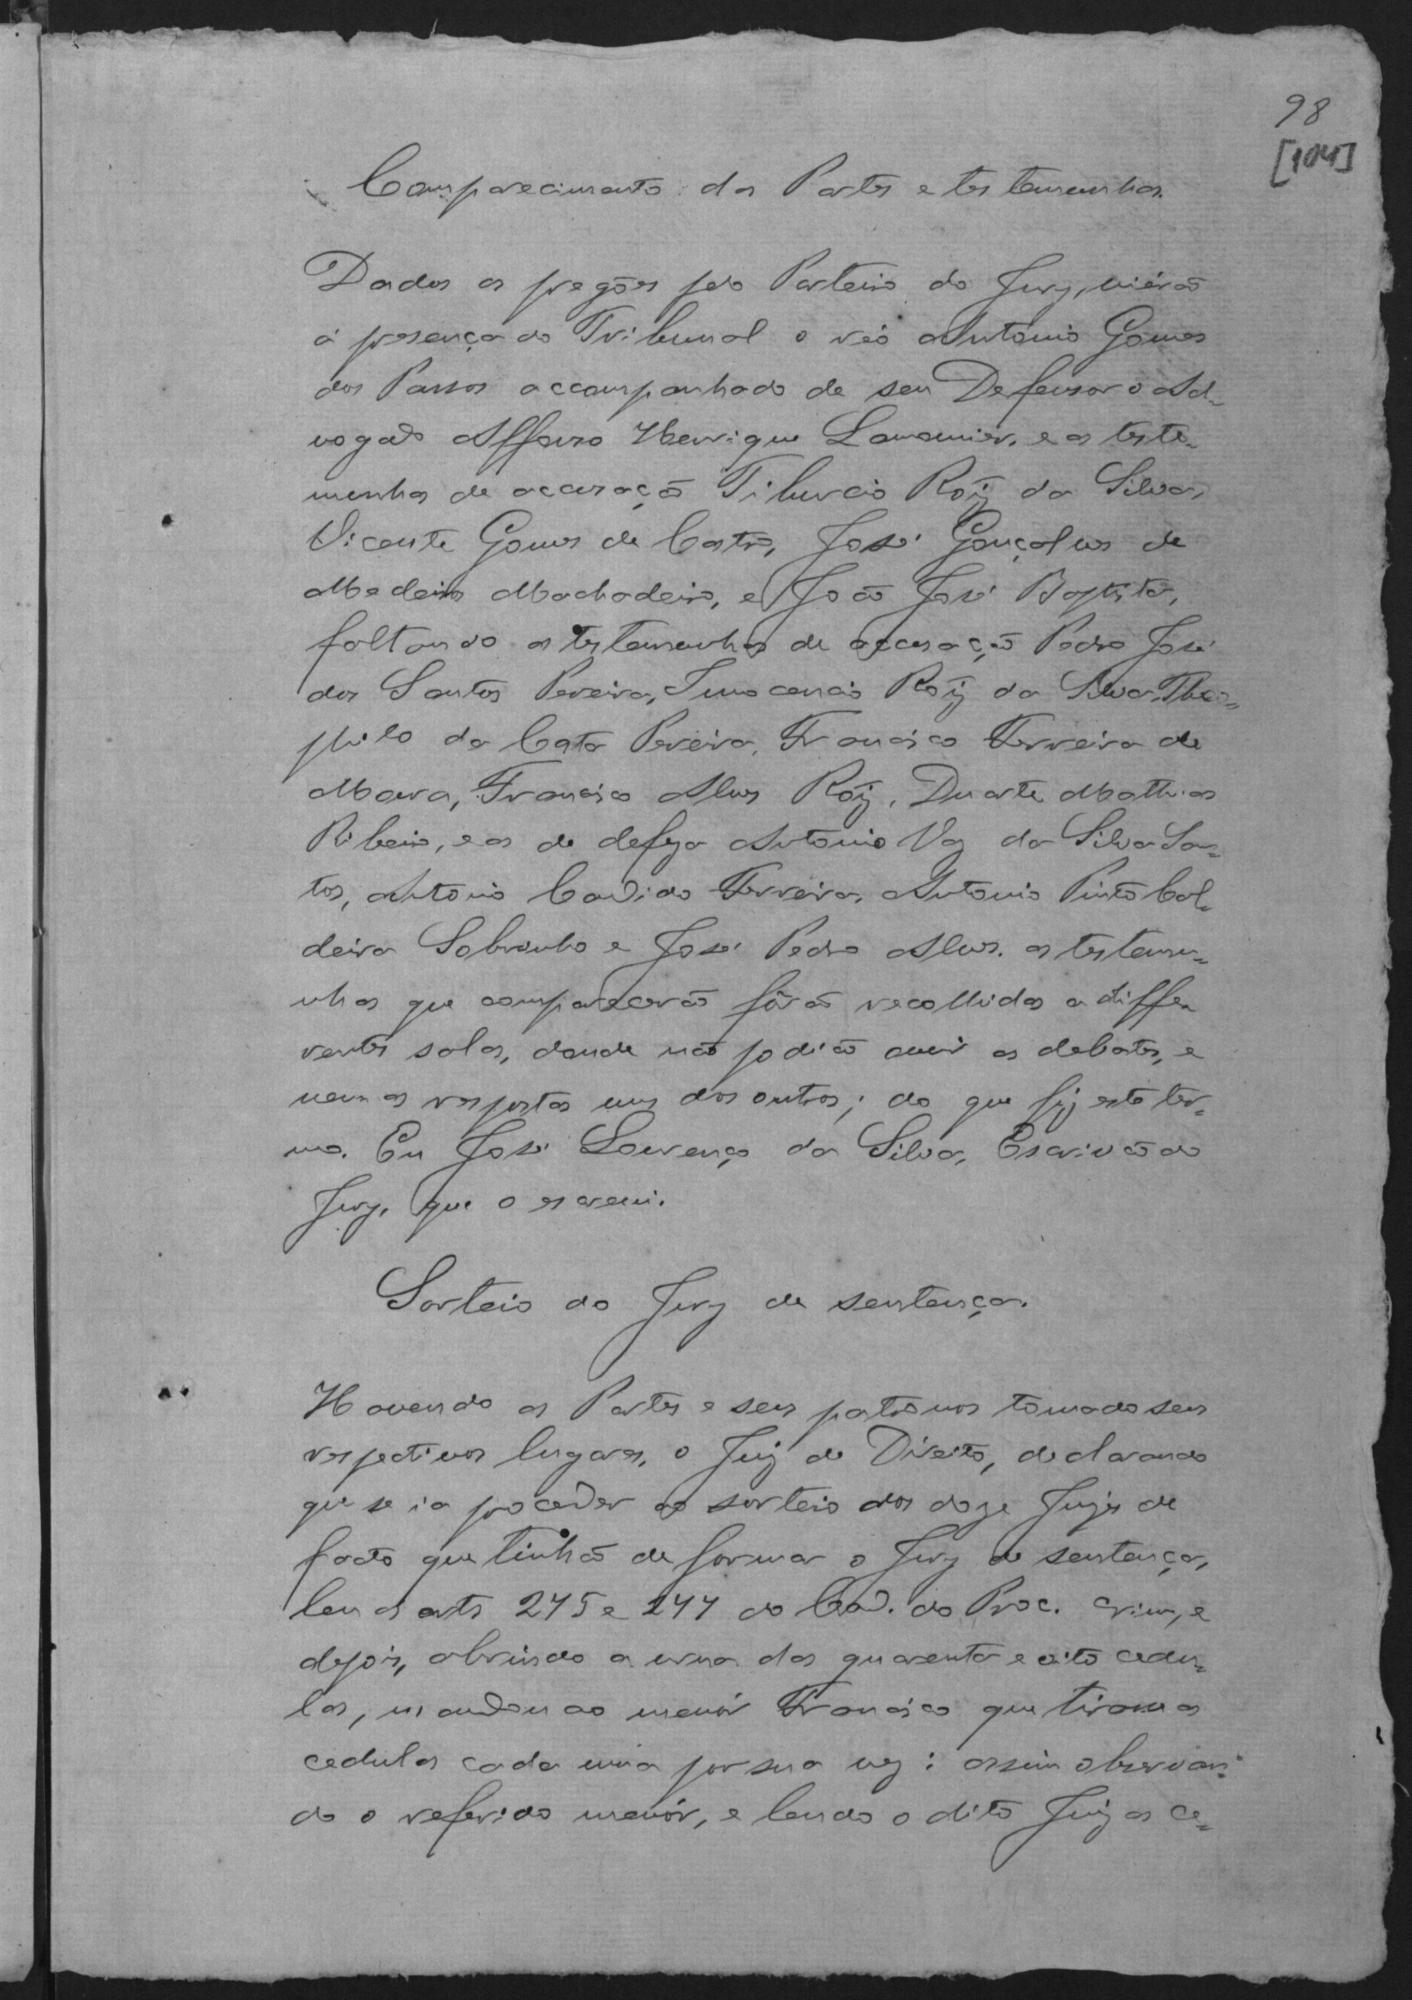 98
[104]
Comparecimento das Partes e testemunhas.
Dados os pregões pelo Porteiro do Jury, viérão
á presença do Tribunal o réo Antonio Gomes
dos Passos accompanhado de seu Defensor o Ad=
vogado Affonso Henrique Lamounier, e as teste=
munhas de accusação Tiburcio Roiz da Silva,
Vicente Gomes de Castro, José Gonçalves de
Medeiros Machadeiro, e João José Baptista,
faltando as testemunhas de accusação Pedro José
dos Santos Pereira, Innocencio Roiz da Silva, Theo=
philo da Costa Pereira, Francisco Ferreira de
Moura, Francisco Alves Roiz, Duarte Mathias
Ribeiro, e as de defeza Antonio Vaz da Silva San=
tos, Antonio Candido Ferreira, Antonio Pinto Cal=
deira Sobrinho e José Pedro Alves. as testemu=
nhas que comparecerão fôrão recolhidas a diffe=
rentes salas, donde não podião ouvir os debates, e
nem as respostas uns dos outros; do que fiz este ter=
mo. Eu José Lourenço da Silva, Escrivão do
Jury, que o escrevi.
Sorteio do Jury de sentença.
Havendo as Partes e seus patronos tomado seus
respectivos lugares, o Juiz de Direito, declarando
que se ia proceder ao sorteio dos doze Juizes de
facto que tinhão de formar o Jury de sentença,
leu os arts 275 e 277 do Cod. do Proc. Crim, e
depois, abrindo a urna das quarenta e oito cedu=
las, mandou ao menór Francisco que tirasse as
cedulas cada uma por sua vez: assim observan=
do o referido menór, e lendo o dito Juiz as ce=